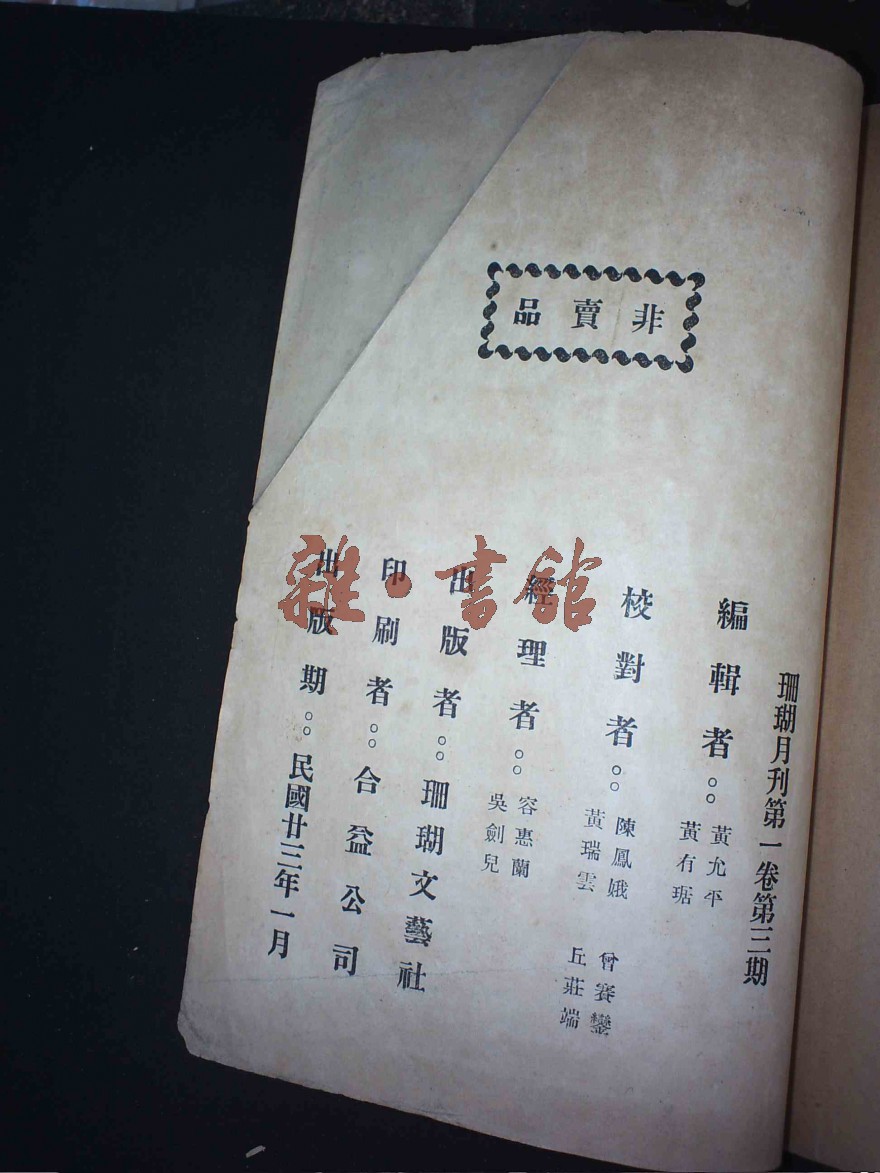 非賣品
珊瑚月刊第一卷第三期
編輯者：黃允平
黃有琚
校對者：陳鳳娥 曾賽鑾
黃瑞雲 丘莊端
經理者：容惠蘭
吳劍兒
出版者：珊瑚文藝社
印刷者：合益公司
出版期：民國廿三年一月
雜·書館